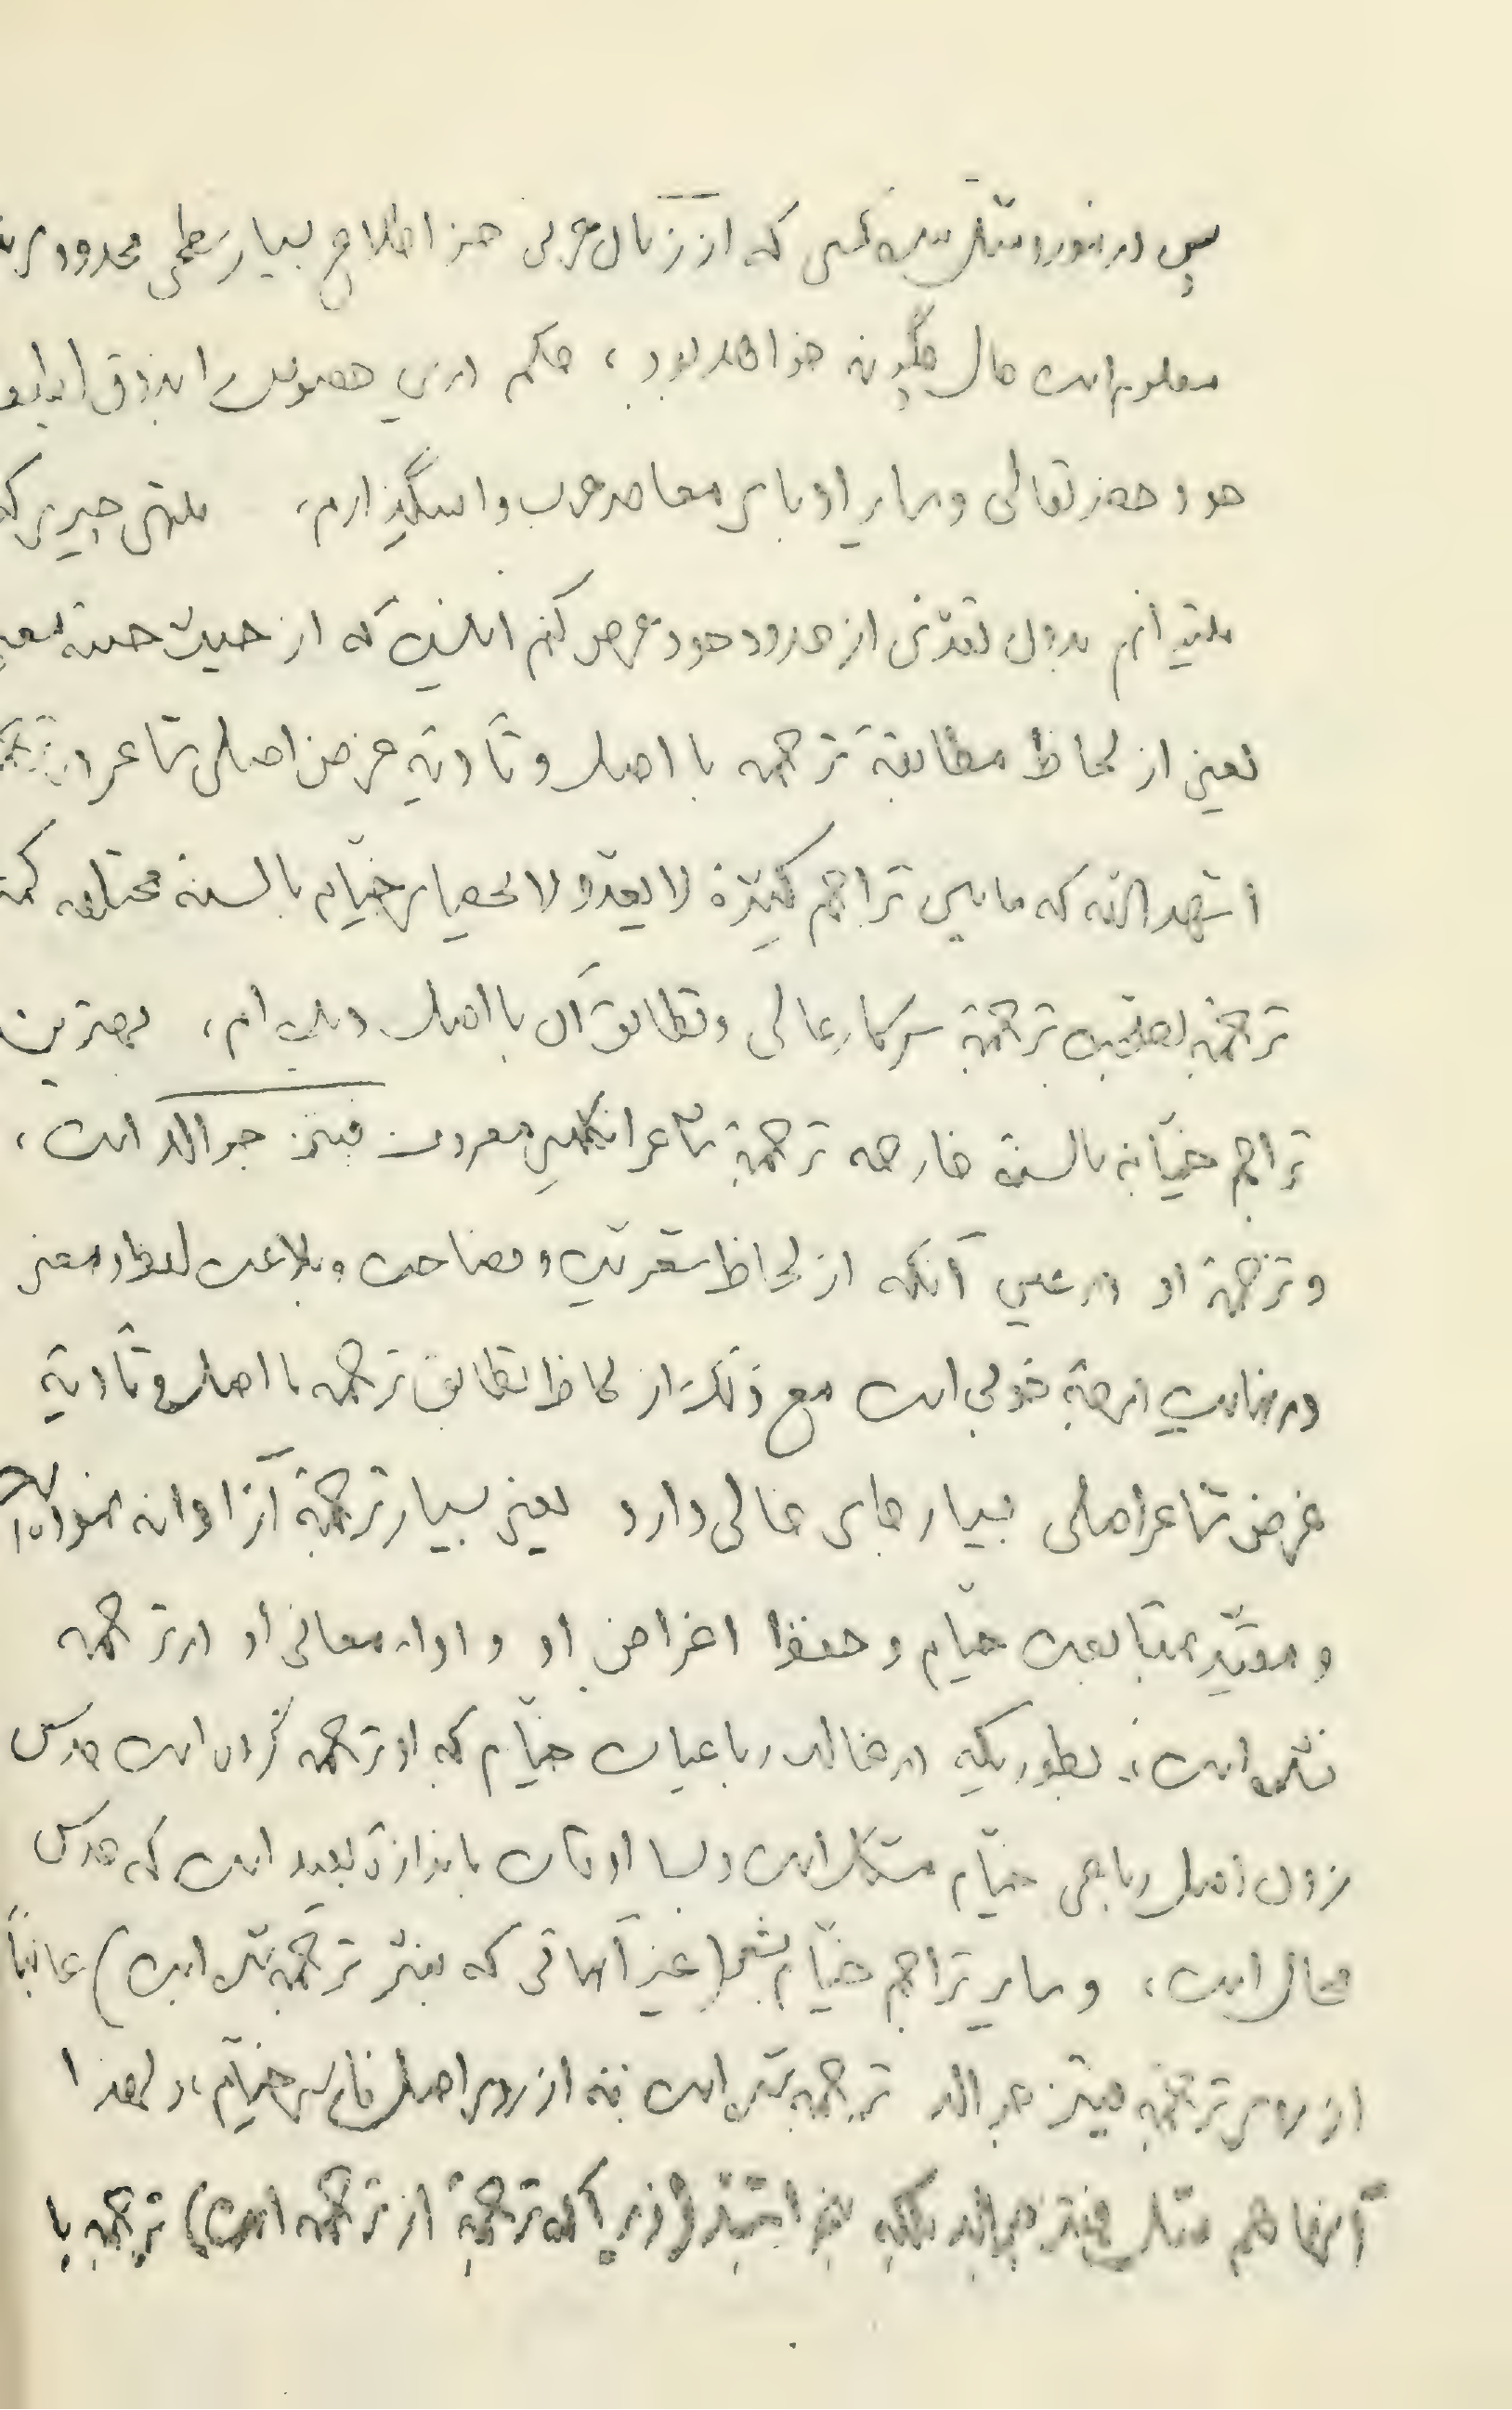 پس در مورد مثل بنده کسی که از زبان عربی جز اطلاع بسیار سطحی محدودی
معلوم است حال چگونه خواهد بود، حکم درین خصوص را بذوق
خود حضرتعالی و سایر ادبای معاصر عرب وا میگذارم، منتهی چیزی که
میتوانم بدون تعدّی از حدود خود عرض کنم اینست که از حیث جنبهٔ
یعنی از لحاظ مطابقهٔ ترجمه با اصل و تأدیهٔ غرض اصلی شاعر در
اشهد الله که مابین تراجم کثیرهٔ لا یعدّ و لا یحصای خیّام بالسنهٔ مختلفه
ترجمهٔ بتقریب ترجمهٔ سرکار عالی و تطابق آن با اصل دیده‌ام، بهترین
تراجم خیّام بالسنهٔ خارجه ترجمهٔ شاعر انگلیسی معروف فیتز جرالد است،
و ترجمهٔ او در عین آنکه از لحاظ شعریّت و فصاحت و بلاغت لفظ و معنی
در نهایت درجهٔ خوبی است مع ذلک از لحاظ تطابق ترجمه با اصل و تأدیهٔ
غرض شاعر اصلی بسیار جای خالی دارد یعنی بسیار ترجمهٔ آزادانه
و مقیّد بمتابعت خیّام و حفظ اغراض او و اداء معانی او در ترجمه
نشده است، بطوریکه در غالب رباعیات خیّام که او ترجمه کرده است حدس
زدن اصل رباعی خیّام مشکل است و بسا اوقات باندازهٔ بعید است که حدس
محال است، و سایر تراجم خیّام بشعر (غیر آنهائی که بنثر ترجمه شده است) غالباً
از روی ترجمهٔ فیتز جرالد ترجمه شده است نه از روی اصل فارسی خیّام، و لهذا
آنها هم مثل فیتز جرالد بلکه (زیرا که ترجمهٔ از ترجمه است) ترجمه با